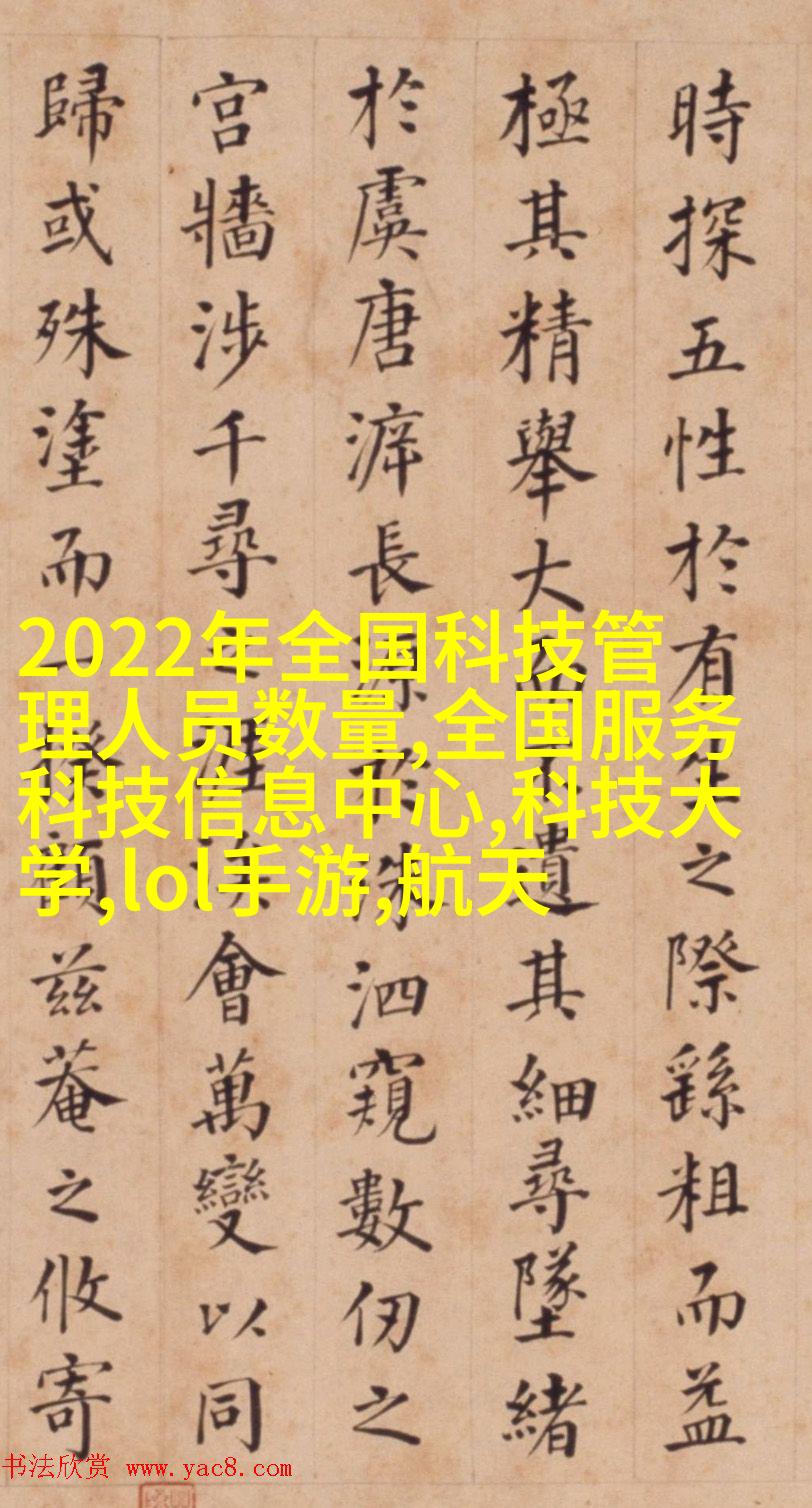 時探五性於有生之際繇粗而益
極其精舉大而不遺其細尋墜緒
於虞唐長源於洙泗窺數仞之
宮牆涉千尋之涯涘會萬變以同
歸或殊塗而一揆顧茲菴之攸寄
2022年全国科技管
理人员数量,全国服务
科技信息中心,科技大
学,lol手游,航天
书法欣赏 www.yac8.com